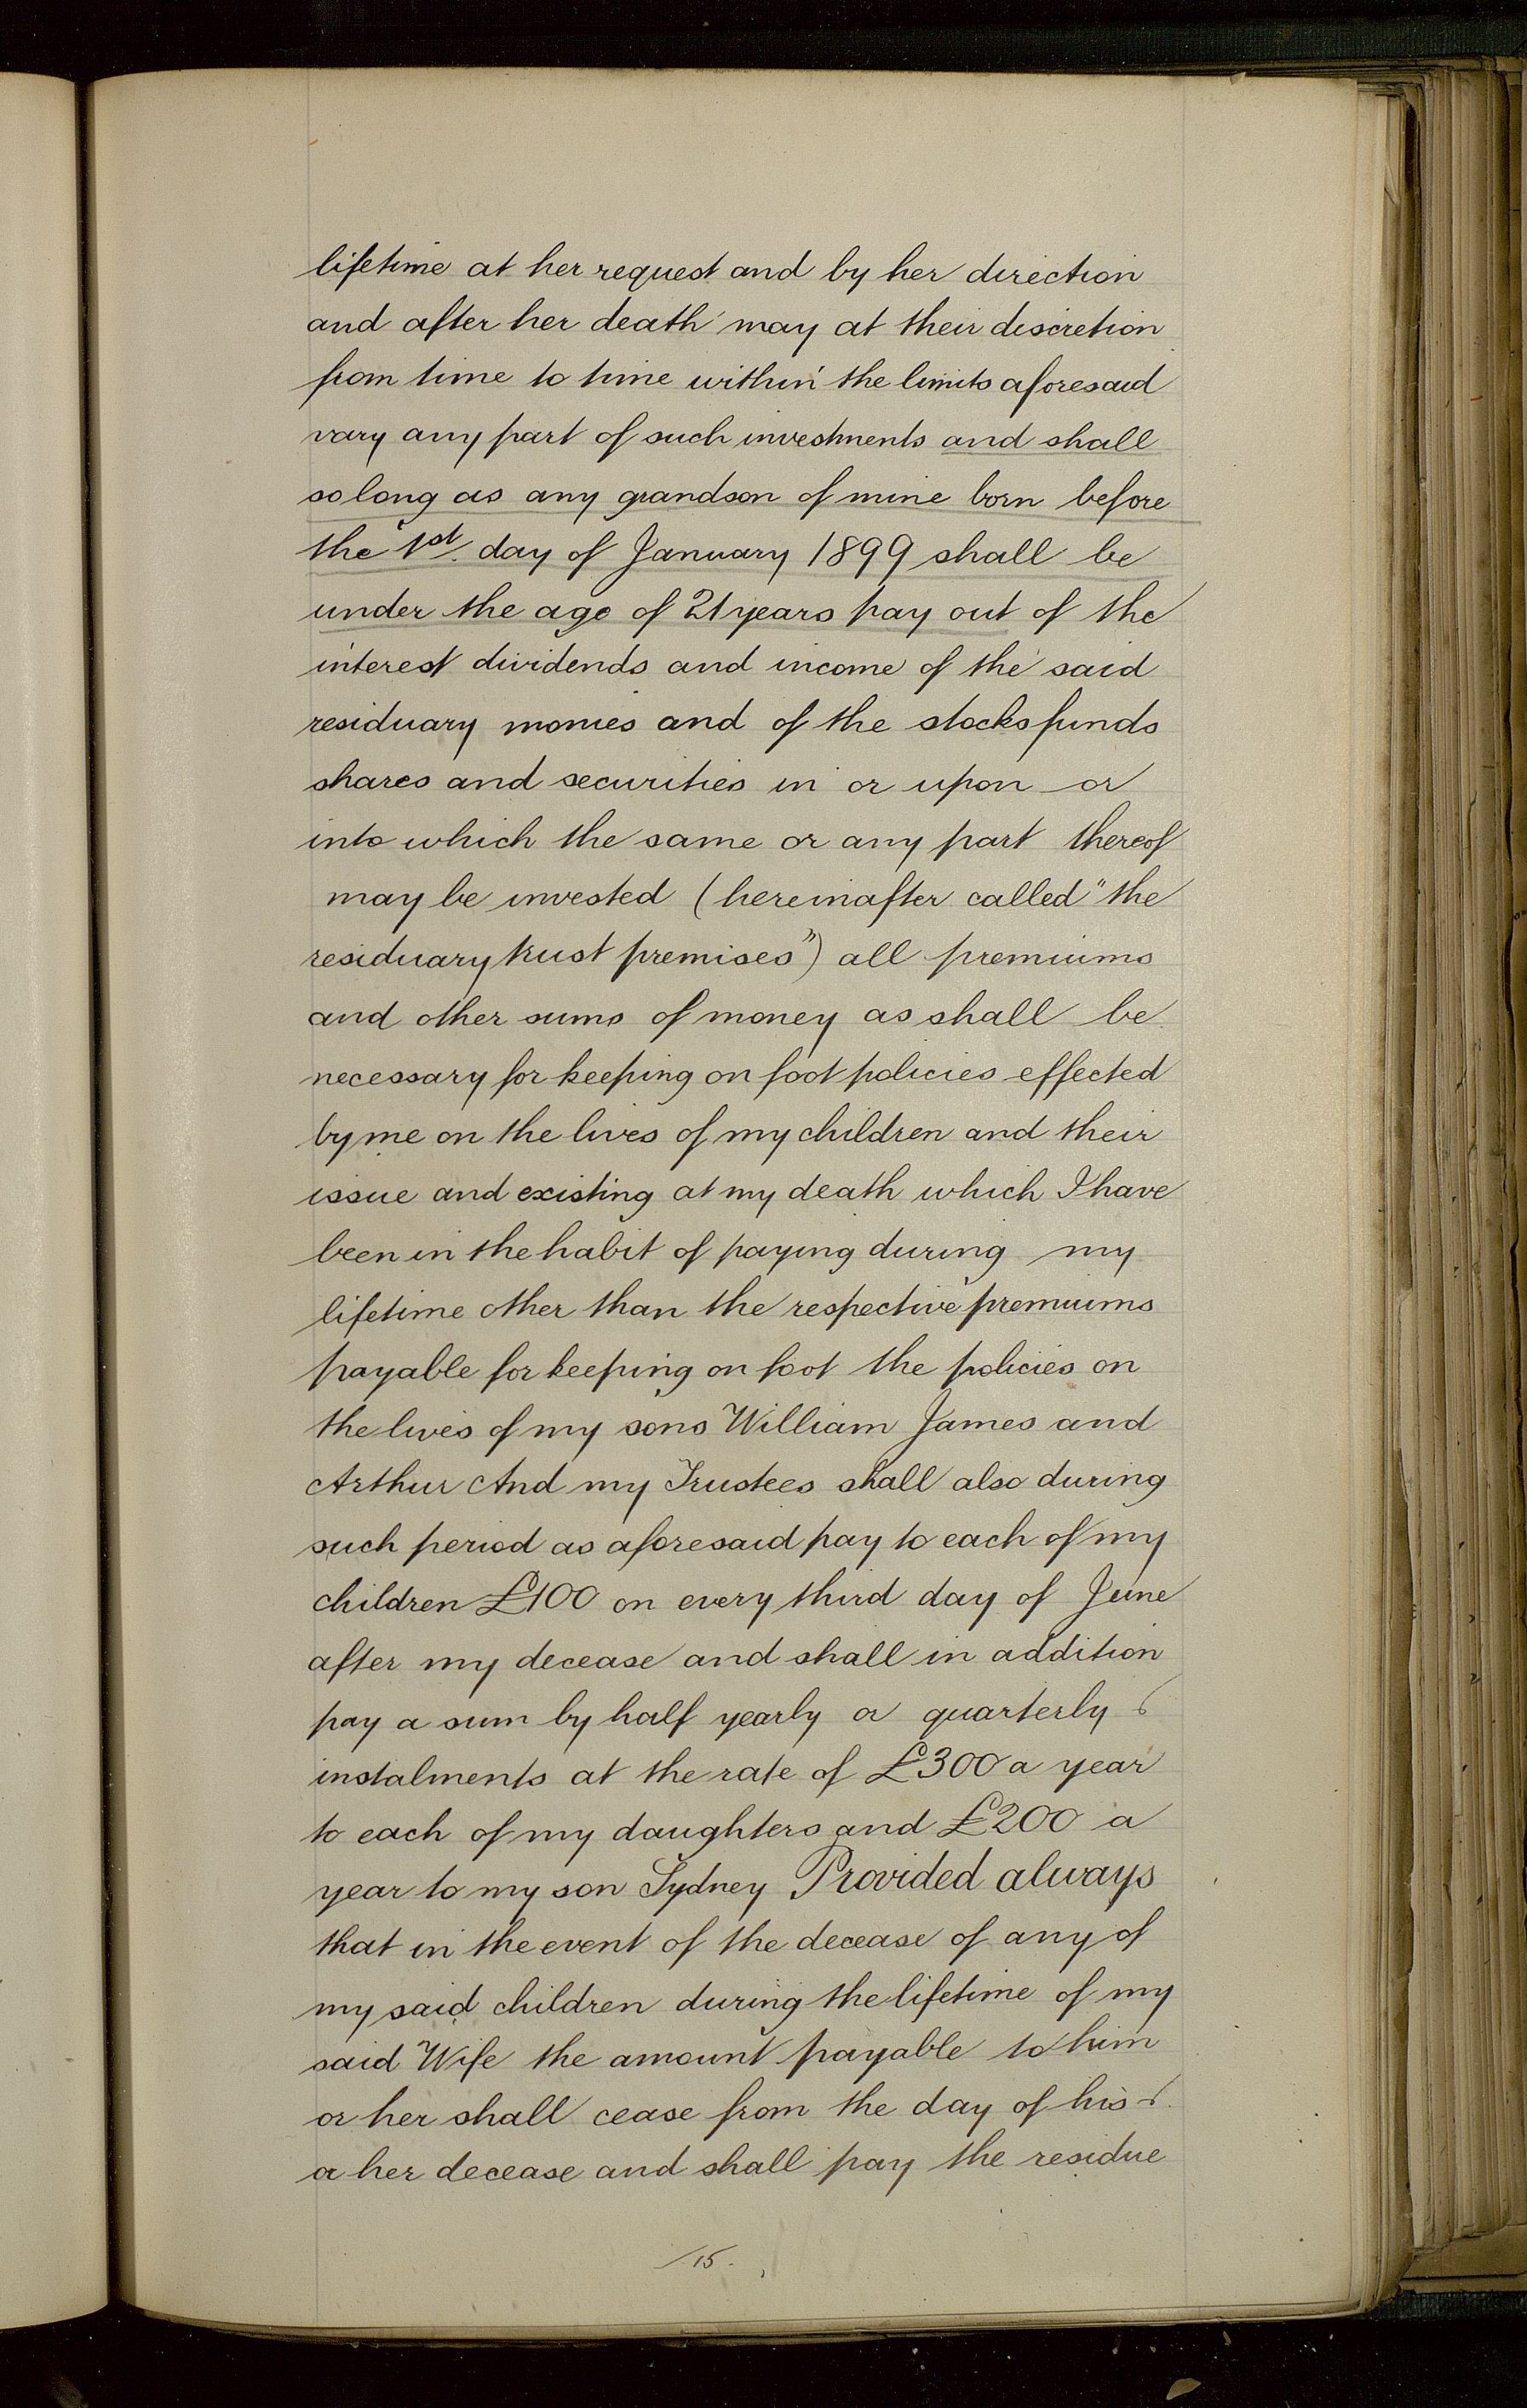 lifetime at her request and by her direction
and after her death may at their discretion
from time to time within the limits aforesaid
vary any part of such investments and shall
so long as any grandson of mine born before
the 1st. day of January 1899 shall be
under the age of 21 years pay out of the
interest dividends and income of the said
residuary monies and of the stocks funds
shares and securities in or upon or
into which the same or any part thereof
may be invested (hereinafter called "the
residuary trust premises") all premiums
and other sums of money as shall be
necessary for keeping on foot policies effected
by me on the lives of my children and their
issue and existing at my death which I have
been in the habit of paying during my
lifetime other than the respective premiums
payable for keeping on foot the policies on
the lives of my sons William James and
Arthur And my Trustees shall also during
such period as aforesaid pay to each of my
children £100 on every third day of June
after my decease and shall in addition
pay a sum by half yearly or quarterly
instalments at the rate of £300 a year
to each of my daughters and £200 a
year to my son Sydney Provided always
that in the event of the decease of any of
my said children during the lifetime of my
said Wife the amount payable to him
or her shall cease from the day of his
or her decease and shall pay the residue
15.